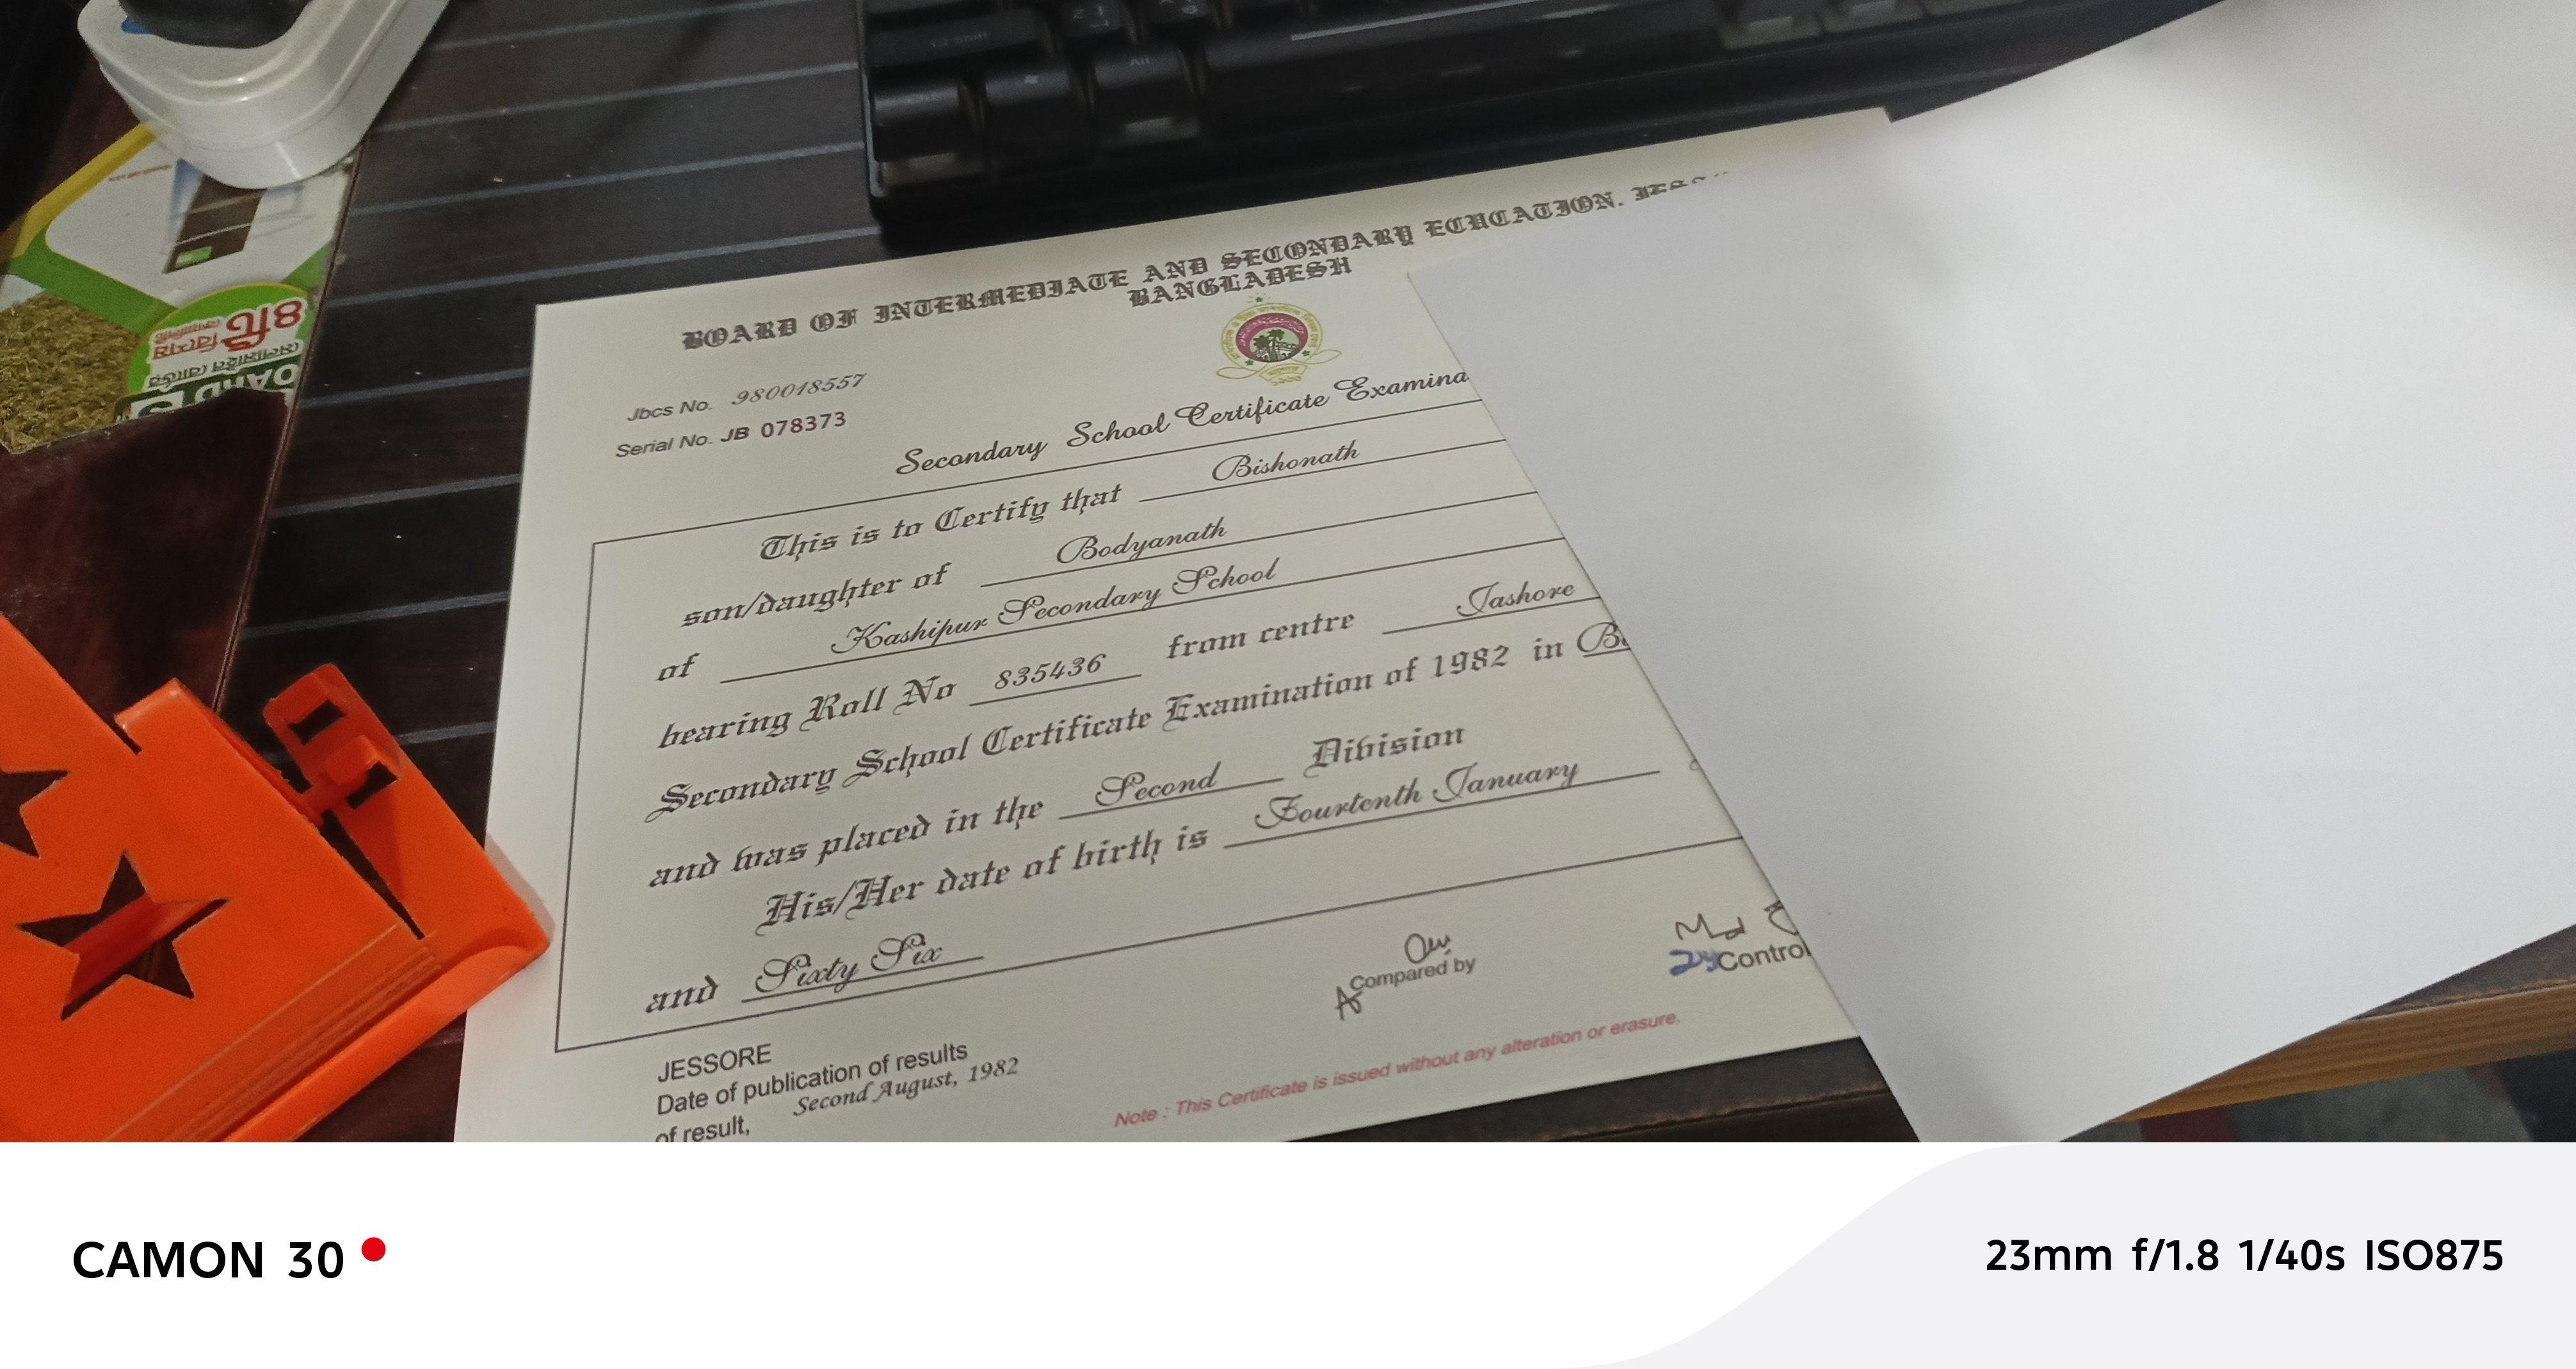 BOARD OF INTERMEDIATE AND SECONDARY ECUCATION,
BANGLADESH
Jbcs No. 980018557
Serial No. JB 078373
Secondary School Certificate Examina
This is to Certify that Bishonath
son/daughter of Bodyanath
of Kashipur Secondary School
bearing Roll No 835436 from centre Jashore
Secondary School Certificate Examination of 1982 in
and was placed in the Second Division
His/Her date of birth is Fourtenth January
and Sixty Six
Compared by
Md
Control
JESSORE
Date of publication of results
Second August, 1982
of result,
Note : This Certificate is issued without any alteration or erasure.
Alt
৪টি
বিশেষ
CAMON 30
23mm f/1.8 1/40s ISO875